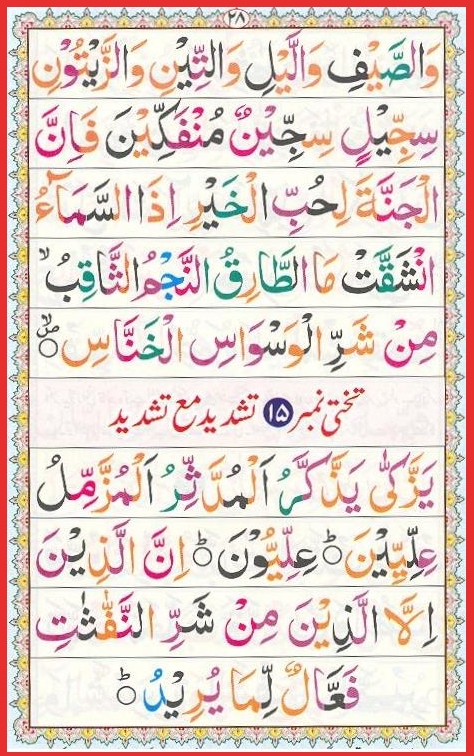 ۲۸
وَالصَّيْفِ وَالَّيْلِ وَالتِّيْنِ وَالزَّيْتُوْنِ
سِجِّيْلٍ سِجِّيْنٌ مُنْفَكِّيْنَ فَاِنَّ
الْجَنَّةَ لِحُبِّ الْخَيْرِ اِذَا السَّمَآءُ
انْشَقَّتْ مَا الطَّارِقُ النَّجْمُ الثَّاقِبُ ۙ
مِنْ شَرِّ الْوَسْوَاسِ الْخَنَّاسِ ۙ○
تختی نمبر ۱۵ تشدید مع تشدید
يَزَّكّٰى يَذَّكَّرُ اَلْمُدَّثِّرُ اَلْمُزَّمِّلُ
عِلِّيِّيْنَ ○ؕ عِلِّيُّوْنَ ○ؕ اِنَّ الَّذِيْنَ
اِلَّا الَّذِيْنَ مِنْ شَرِّ النَّفّٰثٰتِ
فَعَّالٌ لِّمَا يُرِيْدُ ○ؕ